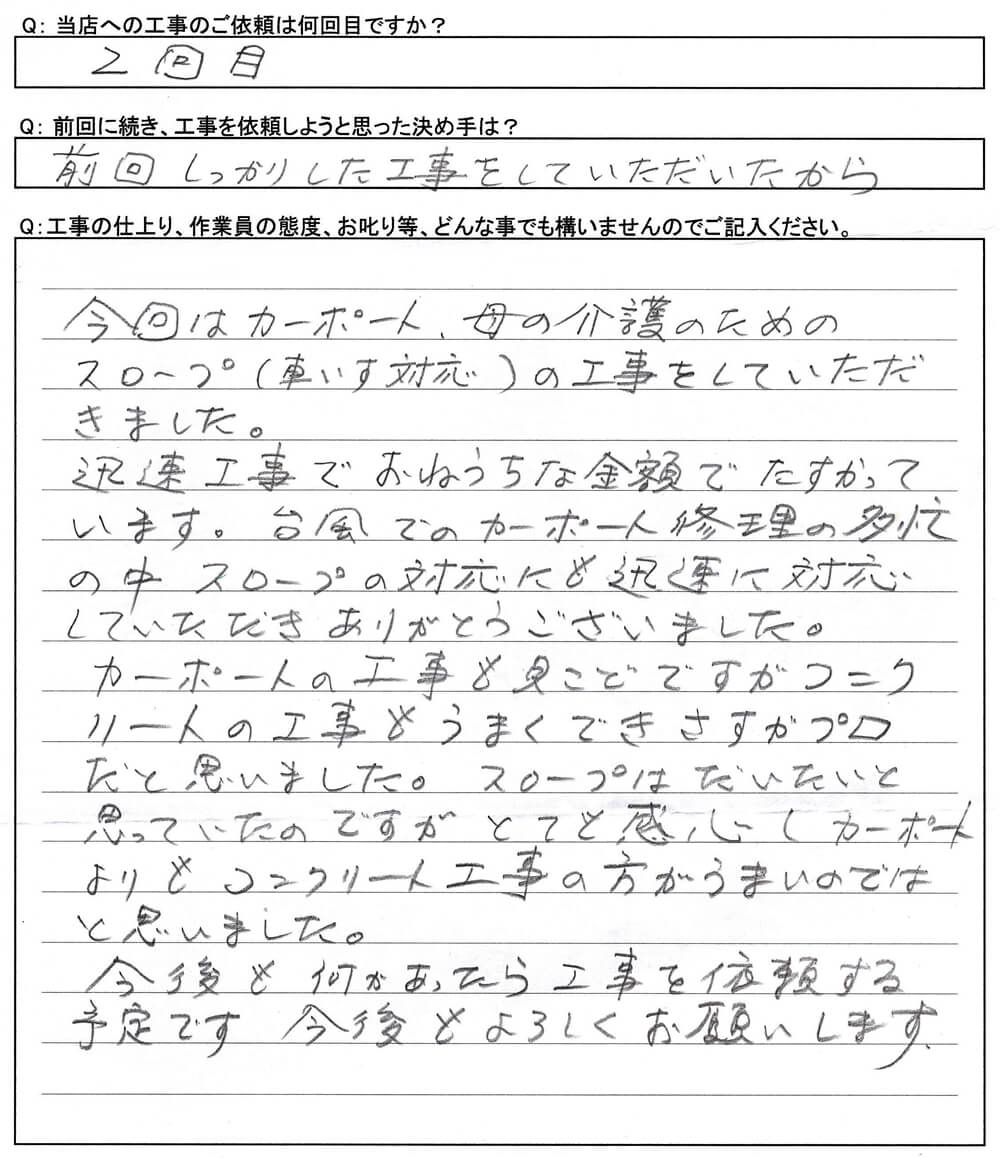 Q: 当店への工事のご依頼は何回目ですか？
2回目
Q: 前回に続き、工事を依頼しようと思った決め手は？
前回しっかりした工事をしていただいたから
Q:工事の仕上り、作業員の態度、お叱り等、どんな事でも構いませんのでご記入ください。
今回はカーポート、母の介護のための
スロープ(車いす対応)の工事をしていただ
きました。
迅速工事でおねうちな金額でたすかって
います。台風でのカーポート修理の多忙
の中スロープの対応にも迅速に対応
していただきありがとうございました。
カーポートの工事も見ごとですがコンク
リートの工事もうまくできさすがプロ
だと思いました。スロープはだいたいと
思っていたのですがとても感心しカーポート
よりもコンクリート工事の方がうまいのでは
と思いました。
今後も何かあったら工事を依頼する
予定です 今後もよろしくお願いします.